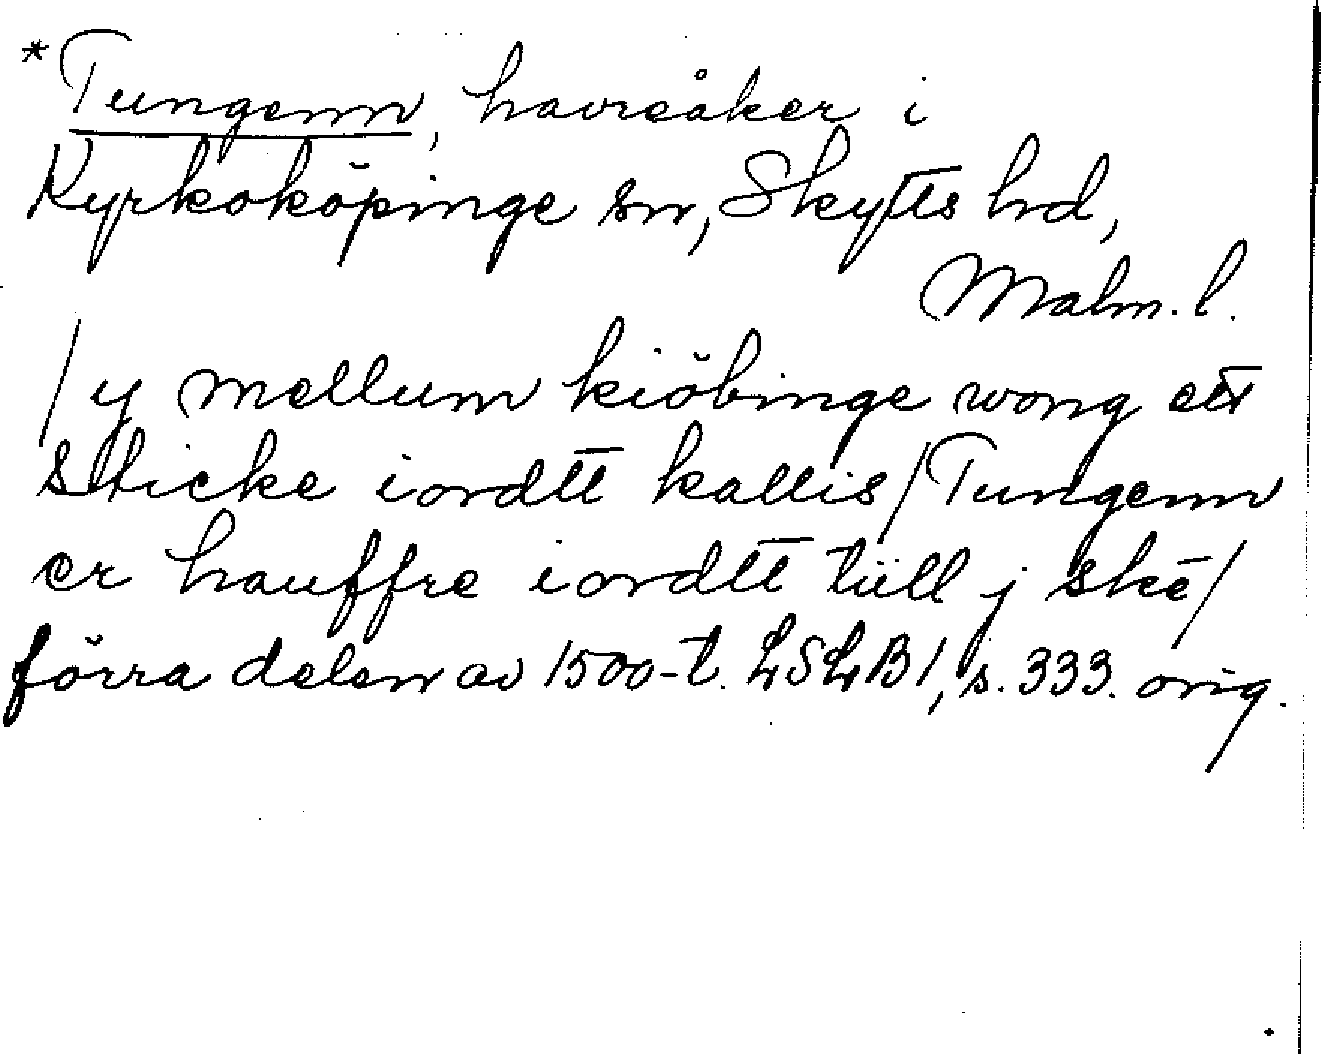 *Tungenn, havreåker i
Kyrkoköpinge sn, Skytts hd,
Malm. l.
/y mellum kiöbinge wong ett
sticke iordtt kallis/Tungenn
er hauffre iordtt tiill j skē/
förra delen av 1500-t. LSLB1, s. 333. orig.